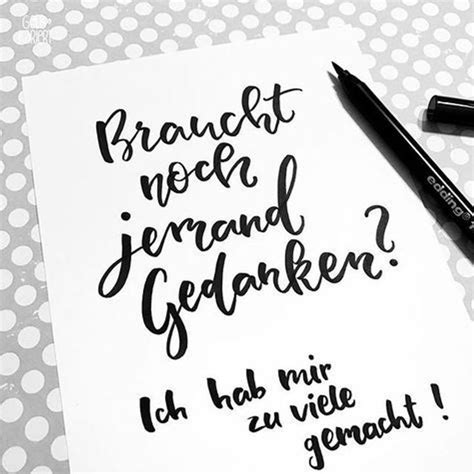 Braucht
noch
jemand
Gedanken?
Ich hab mir
zu viele
gemacht!
edding